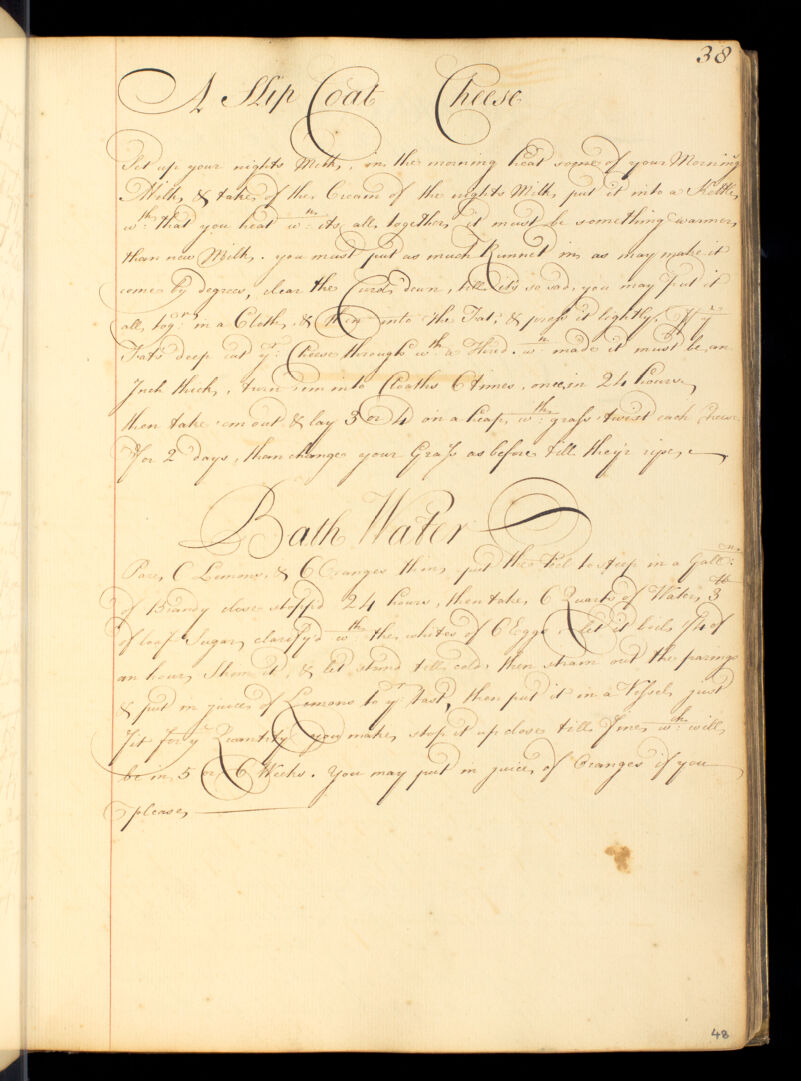 38
A Slip Coat Cheese
Set up your nights Milk, in the morning heat some of your Morning
Milk, & take of the Cream of the nights Milk, put it into a Kettle,
wth: that you heat wn: its all together, it must be something warmer,
than new Milk. you must put as much Runnet in, as may make it
come by degrees, clear the Curds down, till it's so sad, you may put it
all, togr: in a Cloth, & then into the Fat, & press it lightly, If yr
Fat's deep cut yr: Cheese through wth: a Thrid. wn made it must be, an
Inch thick, turn 'em into Cloaths 6 times, once, in 24 hours,
then take 'em out & lay 3 or 4 on a heap, wth: grass twist each Cheese
For 2 days, than change your Grass as before till they'r ripe,
Bath Water
Pare, 6 Lemons, & 6 Oranges thin, put the Peel to steep in a Galln:
of Brandy close stopp'd 24 hours, then take, 6 Quarts of Water, 3th
of loaf Sugar, clarify'd wth the whites of 6 Eggs, let it boil 1/4 of
an hour, Skim it, & let stand till cold, then strain out the parings
& put in juice, of Lemons to yr: Tast, then put it in a Vessel, just
Fit for ye Quantity you make, stop it up close till Fine, wch: will,
be in, 5 or 6 Weeks. You may put in juice, of Oranges if you
please,
48